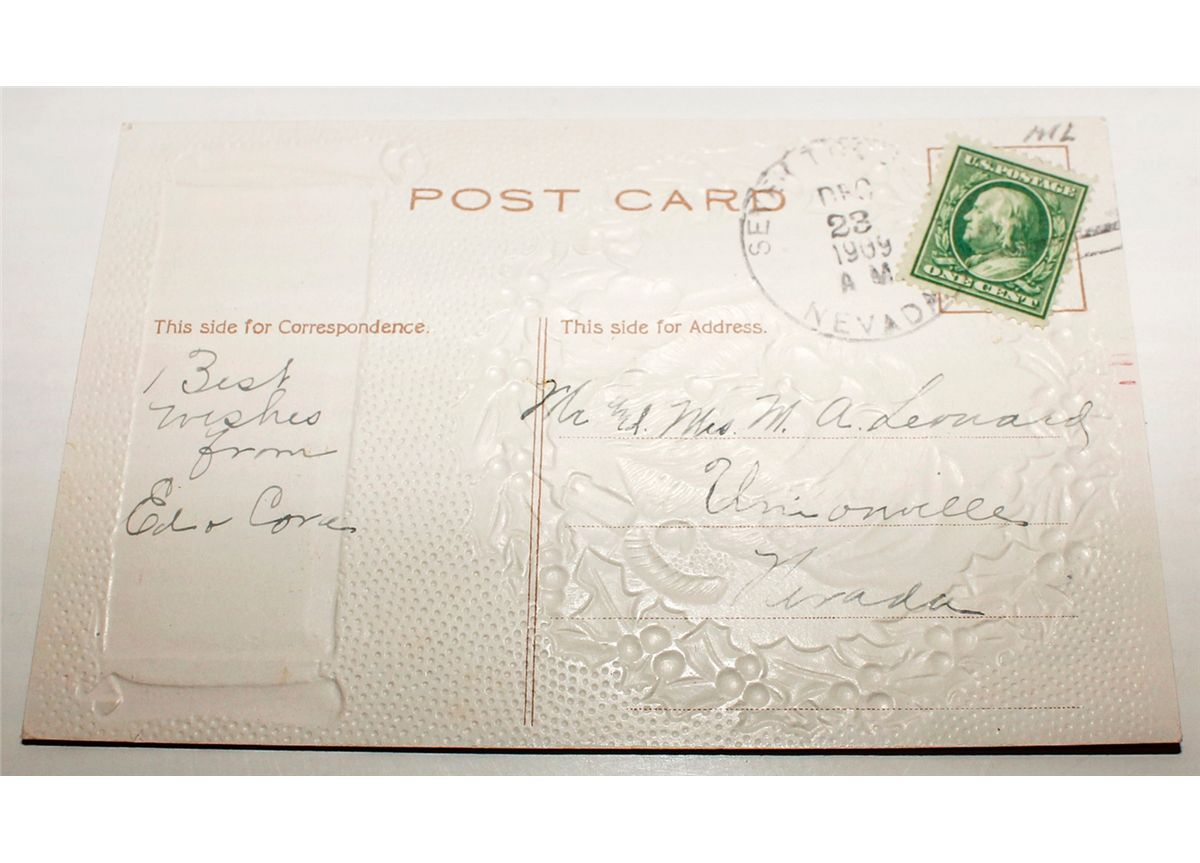 POST CARD
DEC
23
1909
A M
NEVADA
U.S. POSTAGE
ONE CENT
This side for Correspondence.
This side for Address.
Best
wishes
from
Ed
Mr. Mrs. M. A. Leonard
Unionville
Nevada